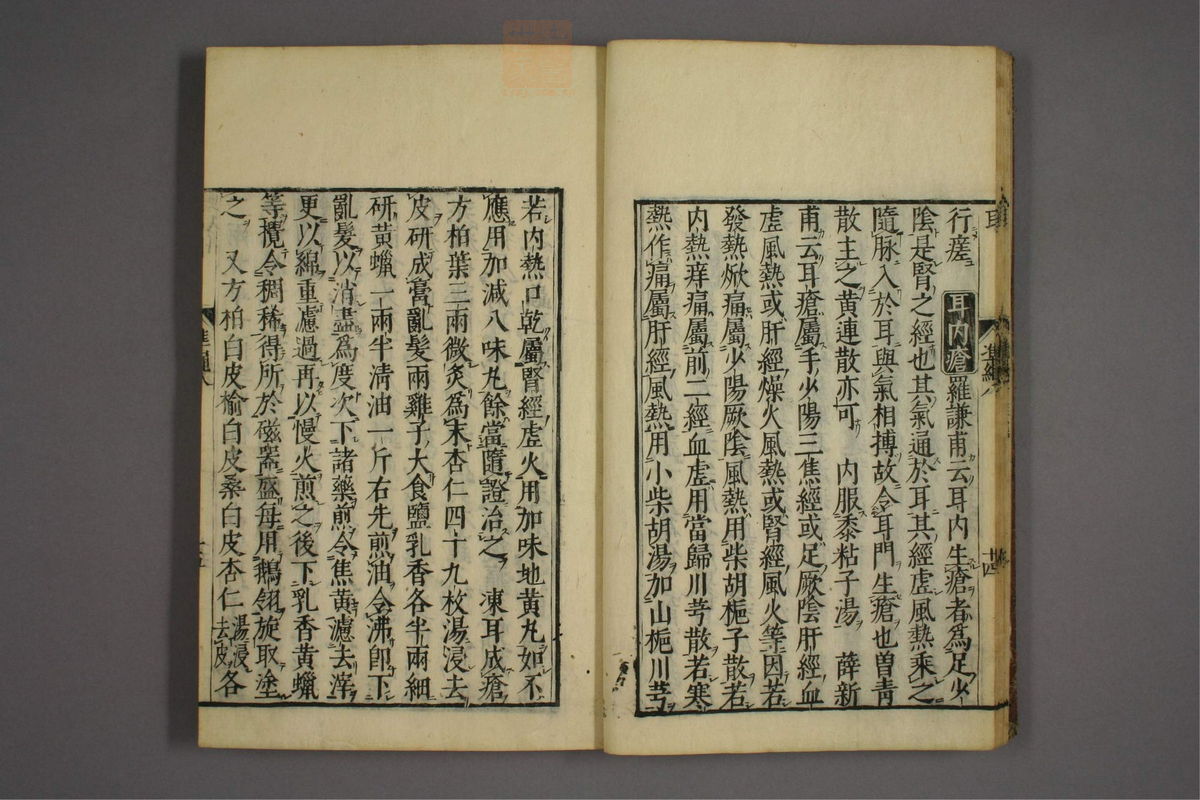 行瘥 耳内瘡 羅謙甫云耳内生瘡者為足少
陰是腎之經也其氣通於耳其經虛風熱乘之
隨脉入於耳與氣相搏故令耳門生瘡也曽青
散主之黄連散亦可 内服黍粘子湯 薛新
甫云耳瘡屬手少陽三焦經或足厥陰肝經血
虛風熱或肝經燥火風熱或腎經風火等因若
發熱焮痛屬少陽厥陰風熱用柴胡梔子散若
内熱痒痛屬前二經血虛用當歸川芎散若寒
熱作痛屬肝經風熱用小柴胡湯加山梔川芎
十四
若内熱口乾屬腎經虛火用加味地黄丸如不
應用加減八味丸餘當隨證治之 凍耳成瘡
方柏葉三兩微炙為末杏仁四十九枚湯浸去
皮研成膏亂髮兩雞子大食鹽乳香各半兩細
研黄蠟一兩半清油一斤右先煎油令沸即下
亂髮以消盡為度次下諸藥煎令焦黄濾去滓
更以綿重濾過再以慢火煎之後下乳香黄蠟
等攪令稠稀得所於磁器盛每用鵝翎旋取塗
之 又方柏白皮榆白皮桑白皮杏仁湯浸去皮各